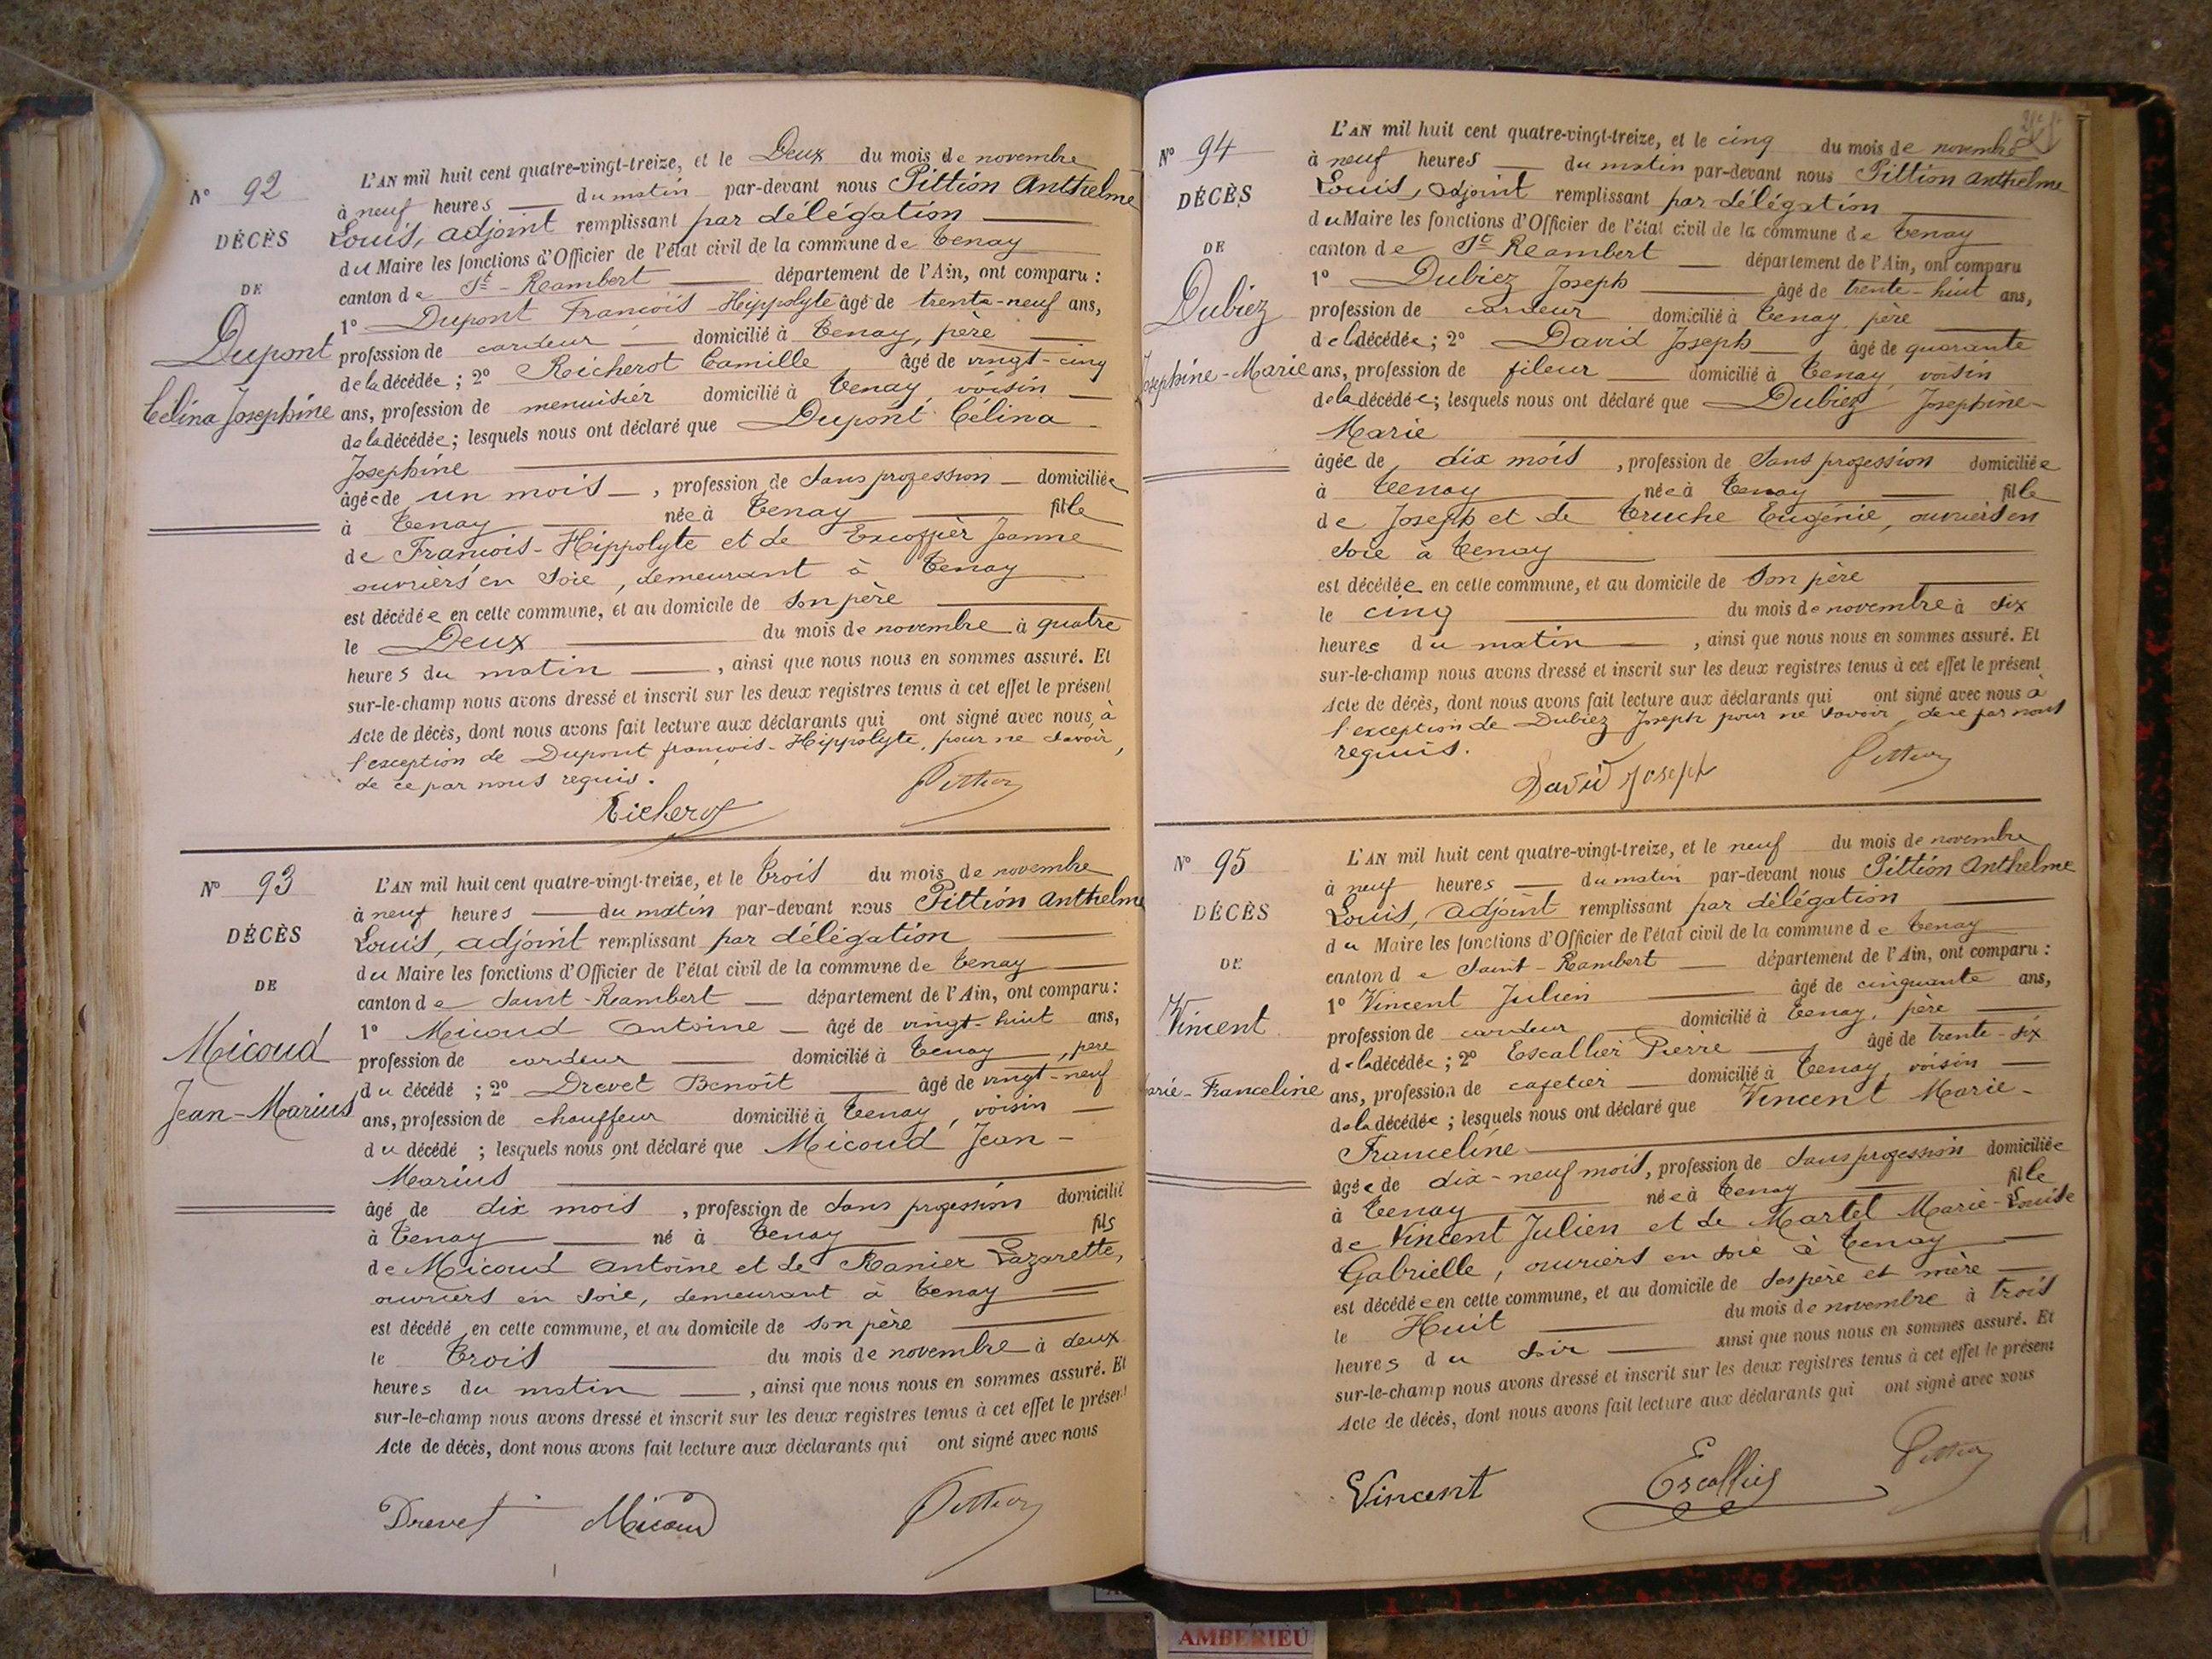 N° 92
DÉCÈS
DE
Dupont
Célina Josephine
L'AN mil huit cent quatre-vingt-treize, et le Deux du mois de novembre
à neuf heures du matin par-devant nous Pittion Anthelme
Louis, adjoint remplissant par délégation
du Maire les fonctions d'Officier de l'état civil de la commune de Tenay
canton de St-Rambert département de l'Ain, ont comparu :
1° Dupont François-Hippolyte âgé de trente-neuf ans,
profession de cardeur domicilié à Tenay, père
de la décédée ; 2° Richerot Camille âgé de vingt-cinq
ans, profession de menuisier domicilié à Tenay, voisin
de la décédée ; lesquels nous ont déclaré que Dupont Célina
Josephine
âgée de un mois, profession de sans profession domiciliée
à Tenay née à Tenay fille
de François-Hippolyte et de Excoffier Jeanne
ouvriers en soie, demeurant à Tenay
est décédée en cette commune, et au domicile de son père
le Deux du mois de novembre à quatre
heures du matin, ainsi que nous nous en sommes assuré. Et
sur-le-champ nous avons dressé et inscrit sur les deux registres tenus à cet effet le présent
Acte de décès, dont nous avons fait lecture aux déclarants qui ont signé avec nous à
l'exception de Dupont françois-Hippolyte, pour ne savoir,
de ce par nous requis.
Richerot Pittion
N° 93
DÉCÈS
DE
Micoud
Jean-Marius
L'AN mil huit cent quatre-vingt-treize, et le Trois du mois de novembre
à neuf heures du matin par-devant nous Pittion Anthelme
Louis, adjoint remplissant par délégation
du Maire les fonctions d'Officier de l'état civil de la commune de Tenay
canton de Saint-Rambert département de l'Ain, ont comparu :
1° Micoud Antoine âgé de vingt-huit ans,
profession de cardeur domicilié à Tenay, père
du décédé ; 2° Drevet Benoît âgé de vingt-neuf
ans, profession de chauffeur domicilié à Tenay, voisin
du décédé ; lesquels nous ont déclaré que Micoud Jean-
Marius
âgé de dix mois, profession de sans profession domicilié
à Tenay né à Tenay fils
de Micoud Antoine et de Ranier Lazarette,
ouvriers en soie, demeurant à Tenay
est décédé en cette commune, et au domicile de son père
le Trois du mois de novembre à deux
heures du matin, ainsi que nous nous en sommes assuré. Et
sur-le-champ nous avons dressé et inscrit sur les deux registres tenus à cet effet le présent
Acte de décès, dont nous avons fait lecture aux déclarants qui ont signé avec nous
Drevet Micoud Pittion
N° 94
DÉCÈS
DE
Dubiez
Josephine-Marie
L'AN mil huit cent quatre-vingt-treize, et le cinq du mois de novembre
à neuf heures du matin par-devant nous Pittion Anthelme
Louis, adjoint remplissant par délégation
du Maire les fonctions d'Officier de l'état civil de la commune de Tenay
canton de St-Rambert département de l'Ain, ont comparu
1° Dubiez Joseph âgé de trente-huit ans,
profession de cardeur domicilié à Tenay, père
de la décédée ; 2° David Joseph âgé de quarante
ans, profession de fileur domicilié à Tenay voisin
de la décédée ; lesquels nous ont déclaré que Dubiez Josephine-
Marie
âgée de dix mois, profession de sans profession domiciliée
à Tenay née à Tenay fille
de Joseph et de Truche Eugénie, ouvriers en
soie à Tenay
est décédée en cette commune, et au domicile de son père
le cinq du mois de novembre à six
heures du matin, ainsi que nous nous en sommes assuré. Et
sur-le-champ nous avons dressé et inscrit sur les deux registres tenus à cet effet le présent
Acte de décès, dont nous avons fait lecture aux déclarants qui ont signé avec nous à
l'exception de Dubiez Joseph pour ne savoir, de ce par nous
requis.
David Joseph Pittion
N° 95
DÉCÈS
DE
Vincent
Marie-Franceline
L'AN mil huit cent quatre-vingt-treize, et le neuf du mois de novembre
à neuf heures du matin par-devant nous Pittion Anthelme
Louis, adjoint remplissant par délégation
du Maire les fonctions d'Officier de l'état civil de la commune de Tenay
canton de Saint-Rambert département de l'Ain, ont comparu :
1° Vincent Julien âgé de cinquante ans,
profession de cardeur domicilié à Tenay, père
de la décédée ; 2° Escallier Pierre âgé de trente-six
ans, profession de cafetier domicilié à Tenay, voisin
de la décédée ; lesquels nous ont déclaré que Vincent Marie-
Franceline
âgée de dix-neuf mois, profession de sans profession domiciliée
à Tenay née à Tenay fille
de Vincent Julien et de Martel Marie-Louise
Gabrielle, ouvriers en soie à Tenay
est décédée en cette commune, et au domicile de ses père et mère
le Huit du mois de novembre à trois
heures du soir ainsi que nous nous en sommes assuré. Et
sur-le-champ nous avons dressé et inscrit sur les deux registres tenus à cet effet le présent
Acte de décès, dont nous avons fait lecture aux déclarants qui ont signé avec nous
Vincent Escallier Pittion
AMBERIEU